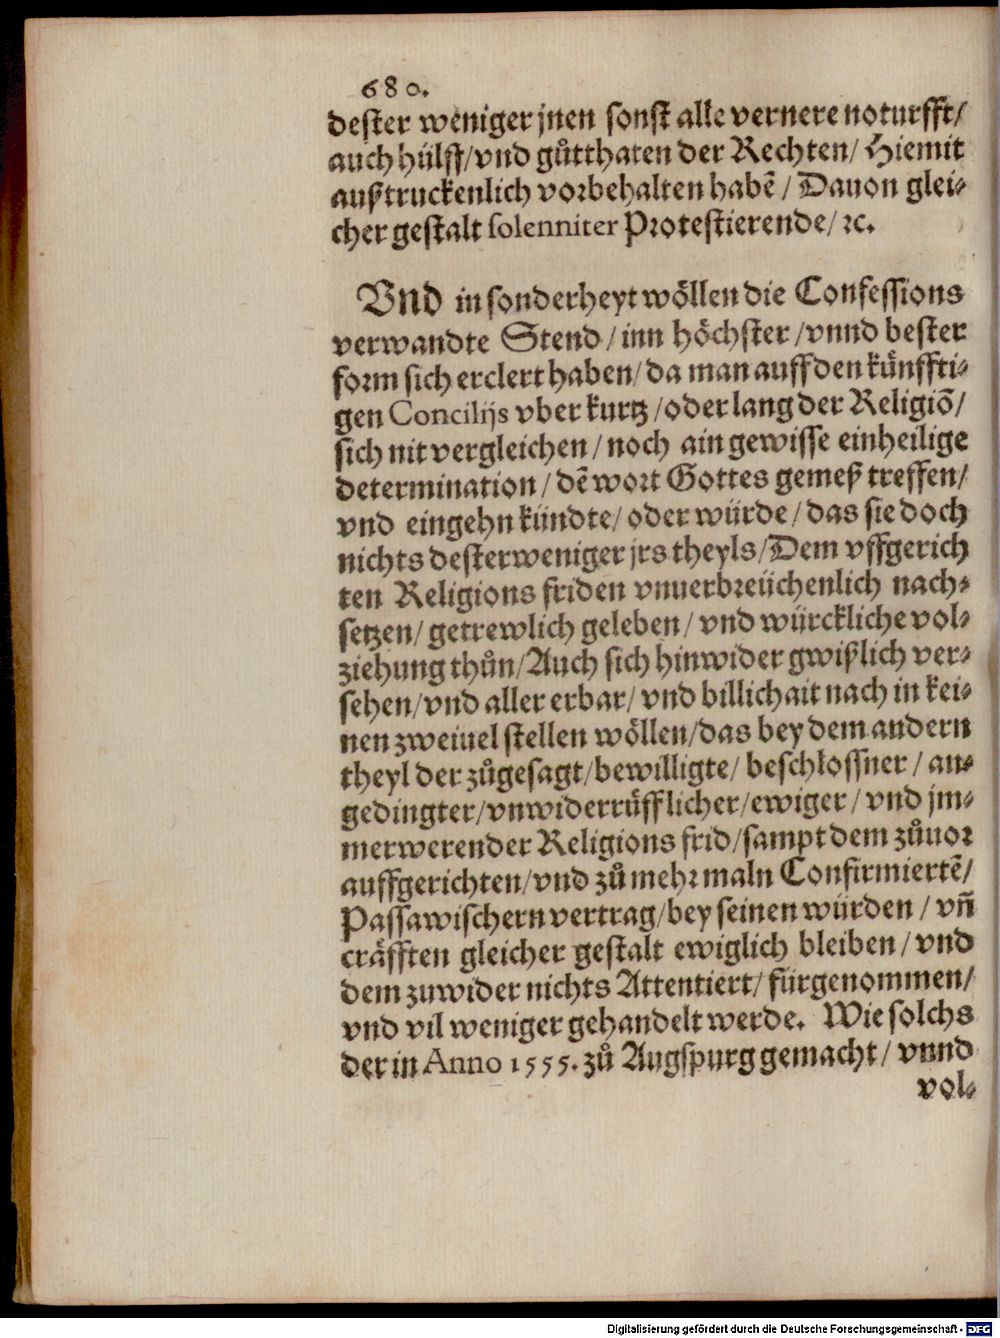 680.
dester weniger jnen sonst alle vernere noturfft/
auch hülff/vnd gůtthaten der Rechten/ Hiemit
außtruckenlich vorbehalten habẽ/ Dauon glei⸗
cher gestalt solenniter Protestierende/ ꝛc.
Vnd in sonderheyt wöllen die Confessions
verwandte Stend/ inn höchster/vnnd bester
form sich erclert haben/ da man auff den künffti⸗
gen Concilijs vber kurtz/oder lang der Religiõ/
sich nit vergleichen/ noch ain gewisse einheilige
determination/ dẽ wort Gottes gemeß treffen/
vnd eingehn kündte/ oder würde/ das sie doch
nichts desterweniger jrs theyls/Dem vffgerich
ten Religions friden vnuerbreüchenlich nach⸗
setzen/ getrewlich geleben/ vnd würckliche vol⸗
ziehung thůn/Auch sich hinwider gwißlich ver⸗
sehen/vnd aller erbar/ vnd billichait nach in kei⸗
nen zweiuel stellen wöllen/das bey dem andern
theyl der zůgesagt/bewilligte/ beschlossner/ an⸗
gedingter/vnwiderrüfflicher/ewiger/ vnd jm⸗
merwerender Religions frid/sampt dem zůuor
auffgerichten/vnd zů mehrmaln Confirmiertẽ/
Passawischern vertrag/bey seinen würden/ vñ
cräfften gleicher gestalt ewiglich bleiben/ vnd
dem zuwider nichts Attentiert/ fürgenommen/
vnd vil weniger gehandelt werde. Wie solchs
der in Anno 1555. zů Augspurg gemacht/ vnnd
vol⸗
Digitalisierung gefördert durch die Deutsche Forschungsgemeinschaft - DFG